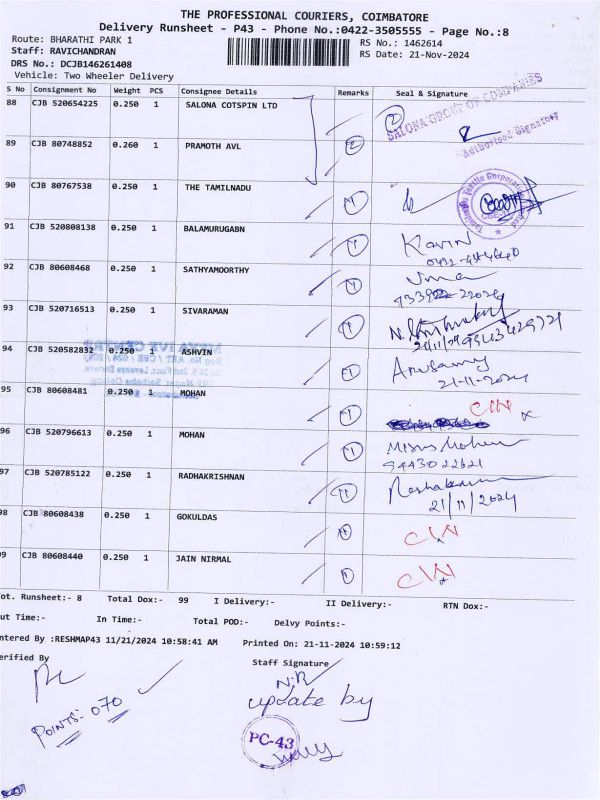 THE PROFESSIONAL COURIERS, COIMBATORE
Delivery Runsheet - P43 - Phone No.:0422-3505555 - Page No.:8
Route: BHARATHI PARK 1
RS No.: 1462614
Staff: RAVICHANDRAN
RS Date: 21-Nov-2024
DRS No.: DCJB146261408
Vehicle: Two Wheeler Delivery
S No Consignment No Weight PCS Consignee Details Remarks Seal & Signature
88 CJB 520654225 0.250 1 SALONA COTSPIN LTD 2
SALONA GROUP OF COMPANIES
Authorised Signatory
89 CJB 80748852 0.260 1 PRAMOTH AVL 2
90 CJB 80767538 0.250 1 THE TAMILNADU 1
91 CJB 520808138 0.250 1 BALAMURUGABN 1 Kavin
92 CJB 80608468 0.250 1 SATHYAMOORTHY 1 Uma
93 CJB 520716513 0.250 1 SIVARAMAN 1
94 CJB 520582832 0.250 1 ASHVIN 1
21-11-2024
95 CJB 80608481 0.250 1 MOHAN 1 CIN
96 CJB 520796613 0.250 1 MOHAN 1
9443022621
97 CJB 520785122 0.250 1 RADHAKRISHNAN 11
21/11/2024
98 CJB 80608438 0.250 1 GOKULDAS 1 CIN
99 CJB 80608440 0.250 1 JAIN NIRMAL 1 CIN
ot. Runsheet:- 8 Total Dox:- 99 I Delivery:- II Delivery:- RTN Dox:-
ut Time:- In Time:- Total POD:- Delvy Points:-
ntered By :RESHMAP43 11/21/2024 10:58:41 AM Printed On: 21-11-2024 10:59:12
erified By
Staff Signature
N.R
POINTS:- 070
update by
PC-43